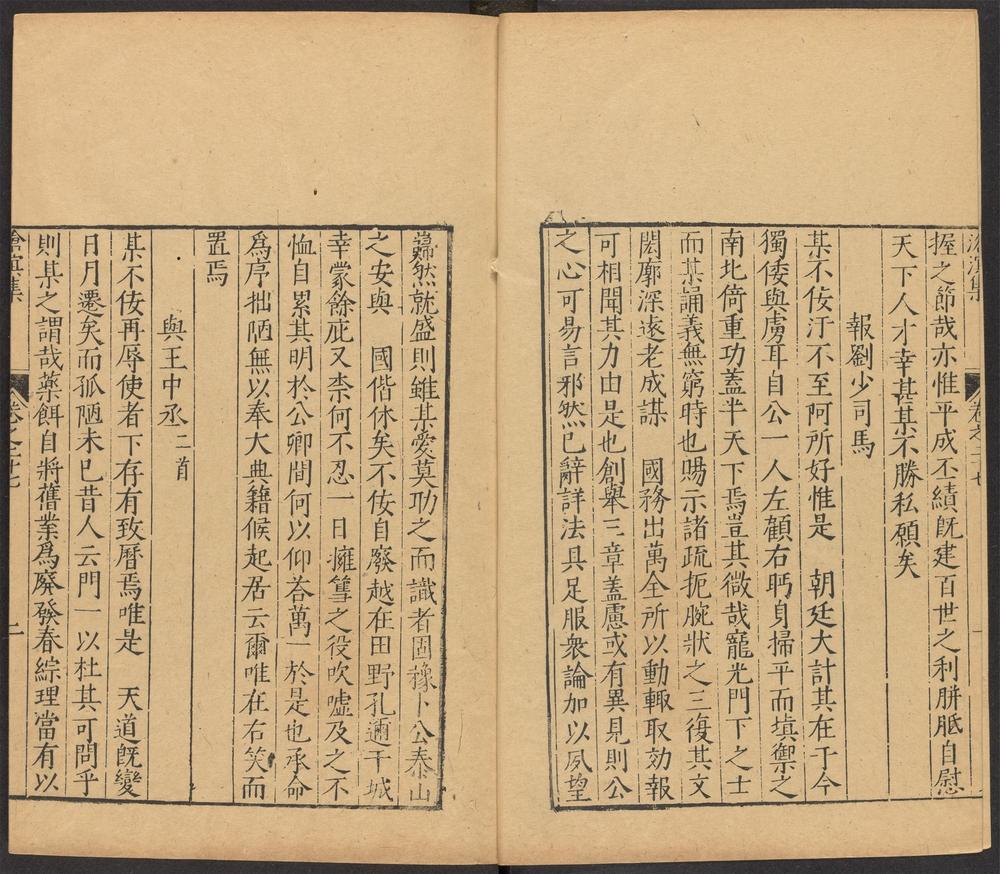 滄溟集
卷之二十七
一
握之節哉亦惟平成丕績旣建百世之利胼胝自慰
天下人才幸甚某不勝私願矣
報劉少司馬
某不佞汙不至阿所好惟是　朝廷大計其在于今
獨倭與虜耳自公一人左顧右眄身掃平而塡禦之
南北倚重功蓋半天下焉豈其微哉寵光門下之士
而其誦義無窮時也賜示諸疏扼腕狀之三復其文
閎廓深遠老成謀　國務出萬全所以動輒取効報
可相聞其力由是也創舉三章蓋慮或有異見則公
之心可易言邪然已辭詳法具足服衆論加以夙望
巋然就盛則雖某愛莫助之而識者固豫卜公泰山
之安與　國偕休矣不佞自廢越在田野孔邇干城
幸蒙餘庇又柰何不忍一日擁篲之役吹噓及之不
恤自累其明於公卿間何以仰荅萬一於是也承命
爲序拙陋無以奉大典籍候起居云爾唯在右笑而
置焉
與王中丞二首
某不佞再辱使者下存有致曆焉唯是　天道旣變
日月遷矣而孤陋未已昔人云門一以杜其可問乎
則某之謂哉藥餌自將舊業爲廢發春綜理當有以
滄溟集
卷之二十七
二